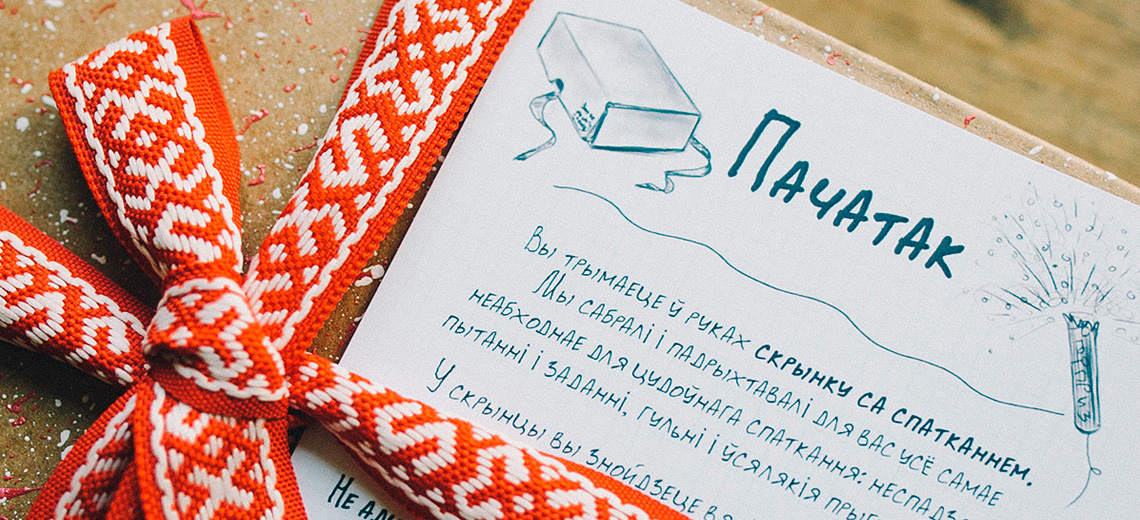 Пачатак
Вы трымаеце ў руках скрынку са спатканнем.
Мы сабралі і падрыхтавалі для вас усё самае
неабходнае для цудоўнага спаткання:
пытанні і заданні, гульні і ўсялякія
У скрынцы вы знойдзеце
Не